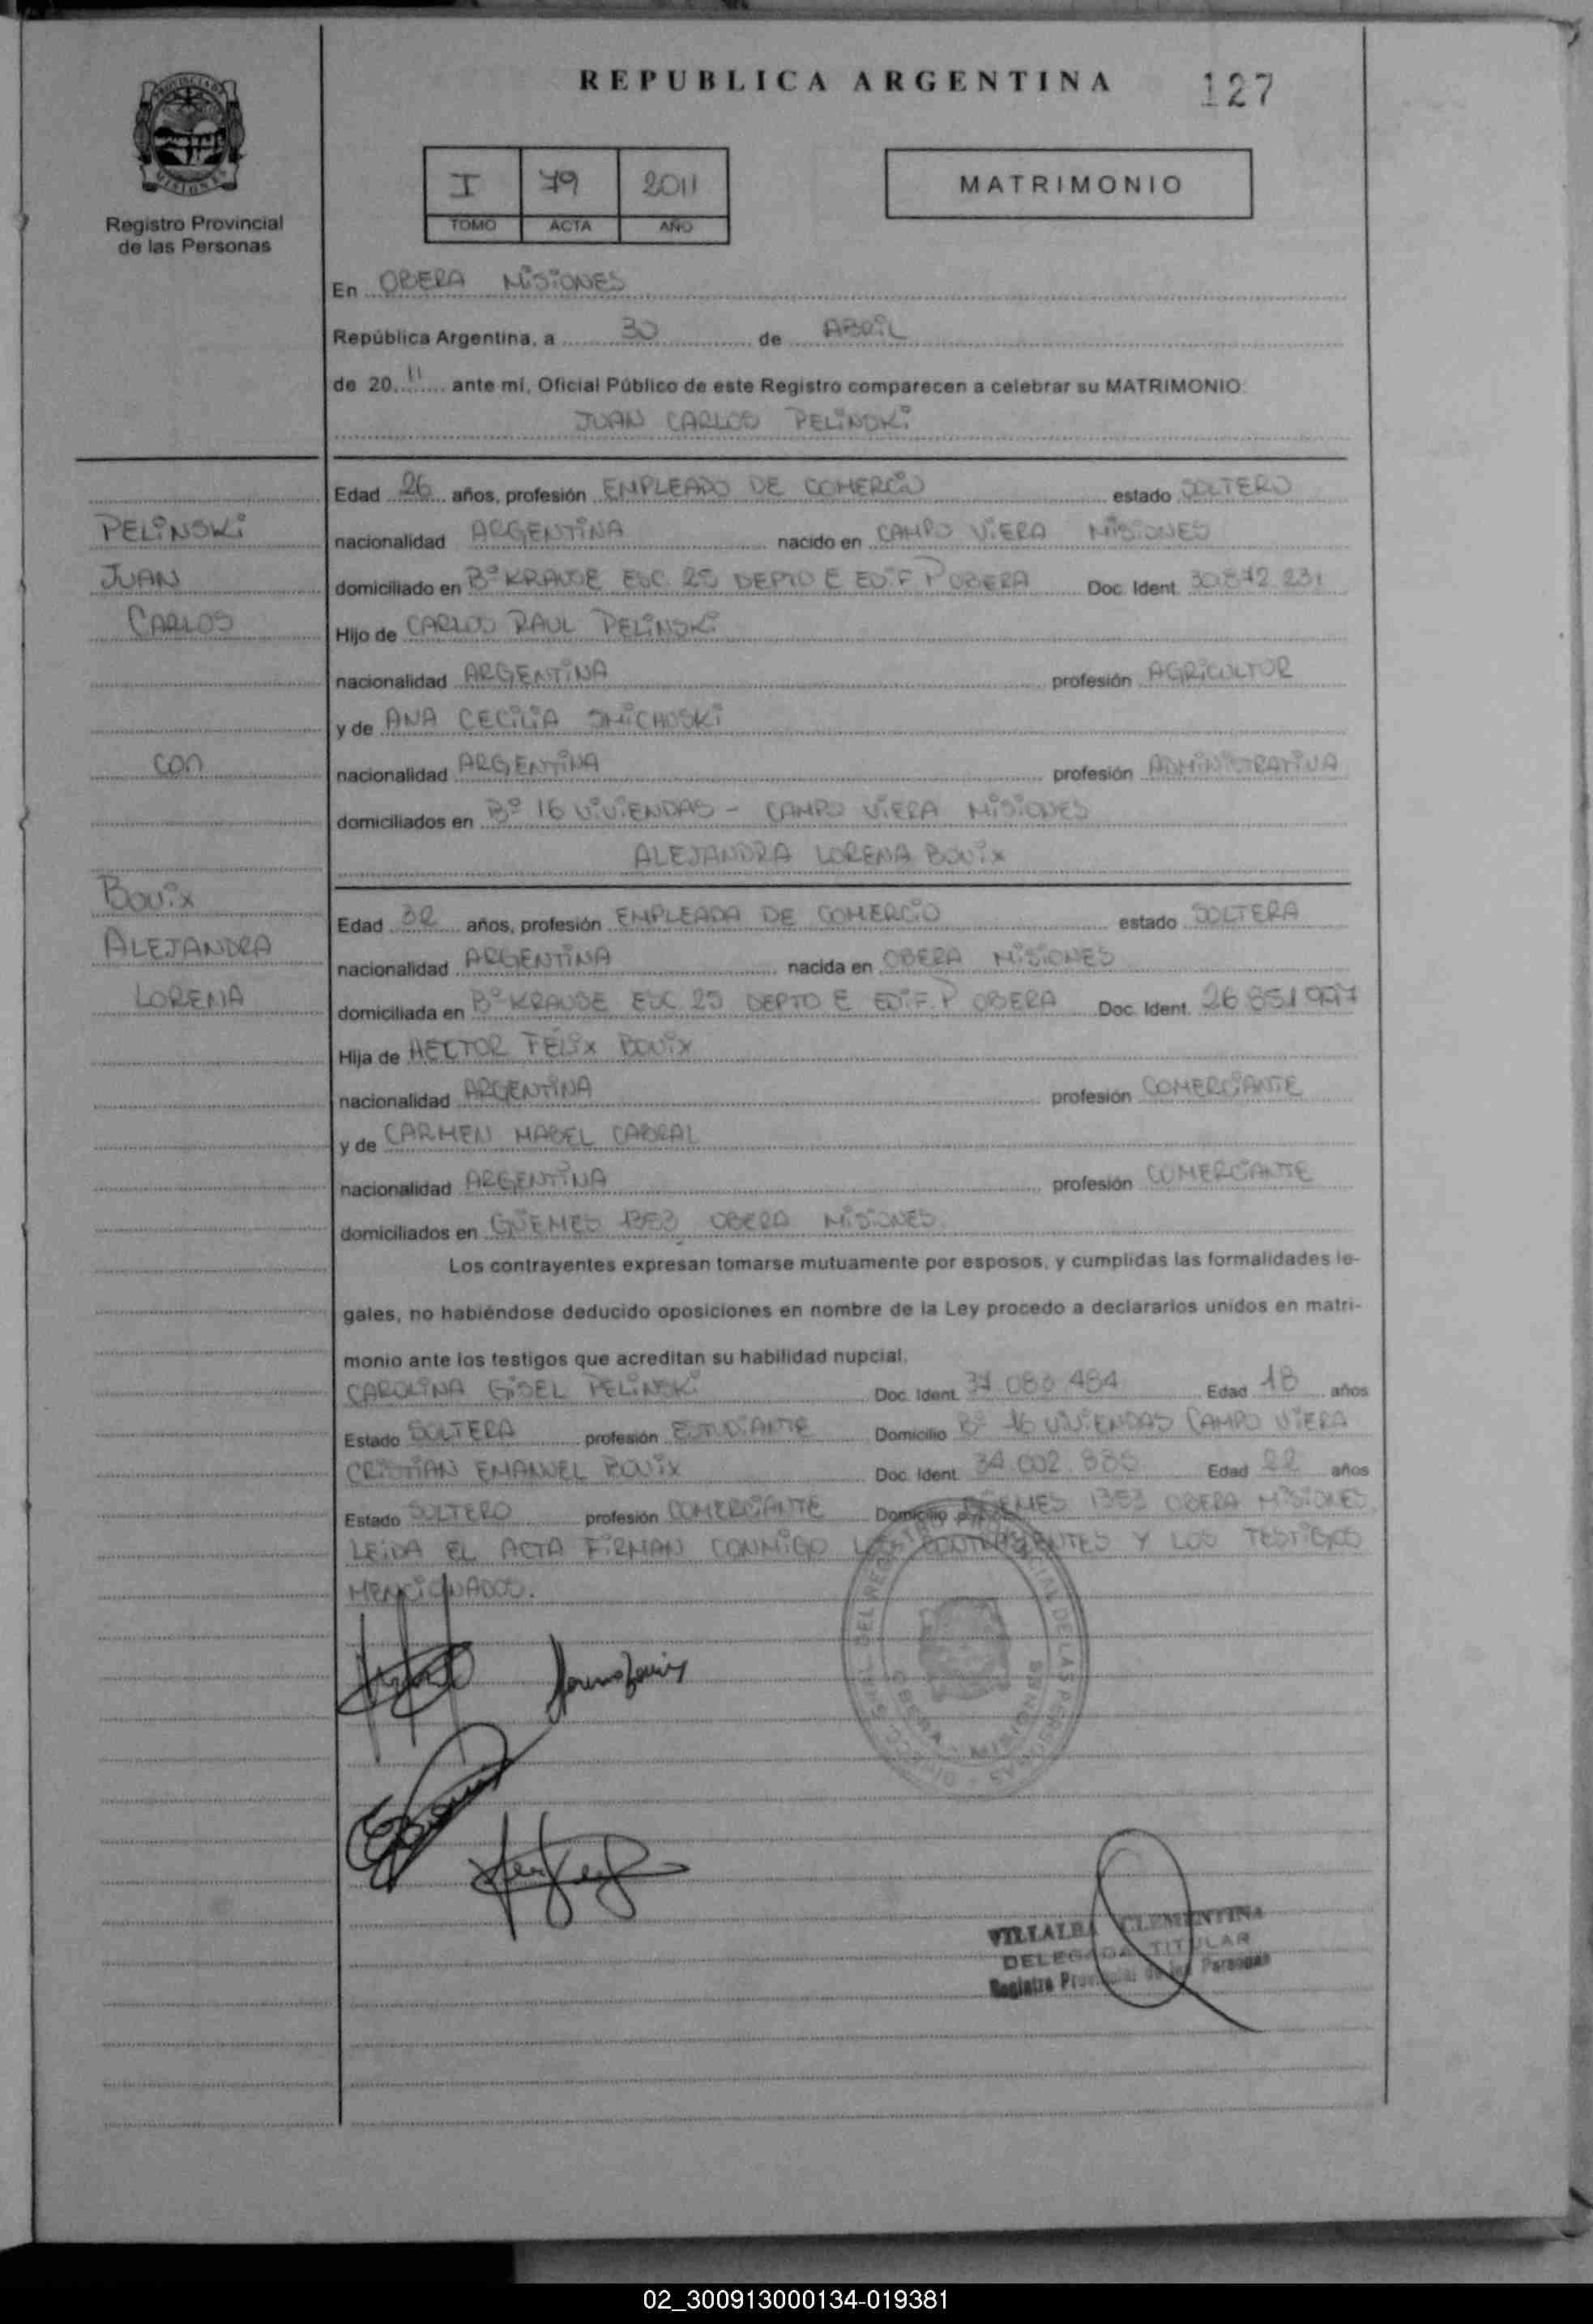 REPUBLICA ARGENTINA
127
Registro Provincial
de las Personas
I 79 2011
TOMO ACTA AÑO
MATRIMONIO
En OBERA MISIONES
República Argentina, a 30 de ABRIL
de 20 11 ante mí, Oficial Público de este Registro comparecen a celebrar su MATRIMONIO:
JUAN CARLOS PELINSKI
Edad 26 años, profesión EMPLEADO DE COMERCIO estado SOLTERO
PELINSKI
nacionalidad ARGENTINA nacido en CAMPO VIERA MISIONES
JUAN
domiciliado en Bº KRAUSE ESC. 25 DEPTO E EDIF P OBERA Doc. Ident. 30.872.231
CARLOS
Hijo de CARLOS RAUL PELINSKI
nacionalidad ARGENTINA profesión AGRICULTOR
y de ANA CECILIA SMICHOSKI
con
nacionalidad ARGENTINA profesión ADMINISTRATIVA
domiciliados en Bº 16 VIVIENDAS - CAMPO VIERA MISIONES
ALEJANDRA LORENA BOVIX
BOVIX
Edad 32 años, profesión EMPLEADA DE COMERCIO estado SOLTERA
ALEJANDRA
nacionalidad ARGENTINA nacida en OBERA MISIONES
LORENA
domiciliada en Bº KRAUSE ESC. 25 DEPTO E EDIF. P OBERA Doc. Ident. 26.851
Hija de HECTOR FELIX BOVIX
nacionalidad ARGENTINA profesión COMERCIANTE
y de CARMEN MABEL CABRAL
nacionalidad ARGENTINA profesión COMERCIANTE
domiciliados en GÜEMES 1353 OBERA MISIONES.
Los contrayentes expresan tomarse mutuamente por esposos, y cumplidas las formalidades le-
gales, no habiéndose deducido oposiciones en nombre de la Ley procedo a declararlos unidos en matri-
monio ante los testigos que acreditan su habilidad nupcial.
CAROLINA GISEL PELINSKI Doc. Ident. 37.083.484 Edad 18 años
Estado SOLTERA profesión ESTUDIANTE Domicilio Bº 16 VIVIENDAS CAMPO VIERA
CRISTIAN EMANUEL BOVIX Doc. Ident. 34.002. Edad 22 años
Estado SOLTERO profesión COMERCIANTE Domicilio GÜEMES 1353 OBERA MISIONES.
LEIDA EL ACTA FIRMAN CONMIGO LOS CONTRAYENTES Y LOS TESTIGOS
MENCIONADOS.
OBERA - MISIONES
VILLALBA CLEMENTINA
DELEGADA TITULAR
Registro Provincial de las Personas
02_300913000134-019381